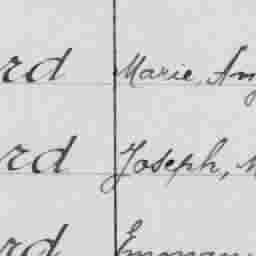 rd Marie, An
rd Joseph, M
rd Emmanu